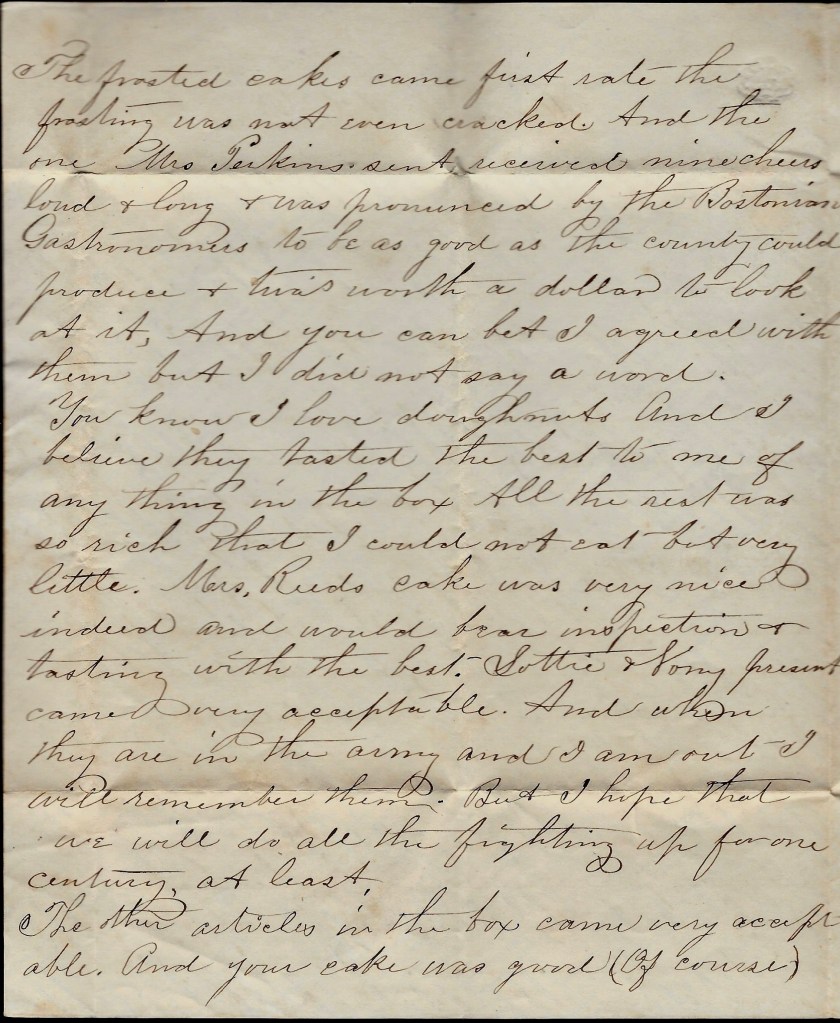 The frosted cakes came first rate the
frosting was not even cracked. And the
one Mrs Perkins sent, received nine cheers
loud & long & was pronunced by the Bostonian
Gastronomers to be as good as the county could
produce & twas worth a dollar to look
at it, And you can bet I agreed with
them but I did not say a word.
You know I love doughnuts And I
believe they tasted the best to me of
any thing in the box All the rest was
so rich that I could not eat but very
little. Mrs, Reeds cake was very nice
indeed and would bear inspection &
tasting with the best. Lottie & present
came very acceptable. And when
they are in the army and I am out I
will remember them. But I hope that
we will do all the fighting up for one
century, at least,
The other articles in the box came very accept
able. And your cake was good (Of course)